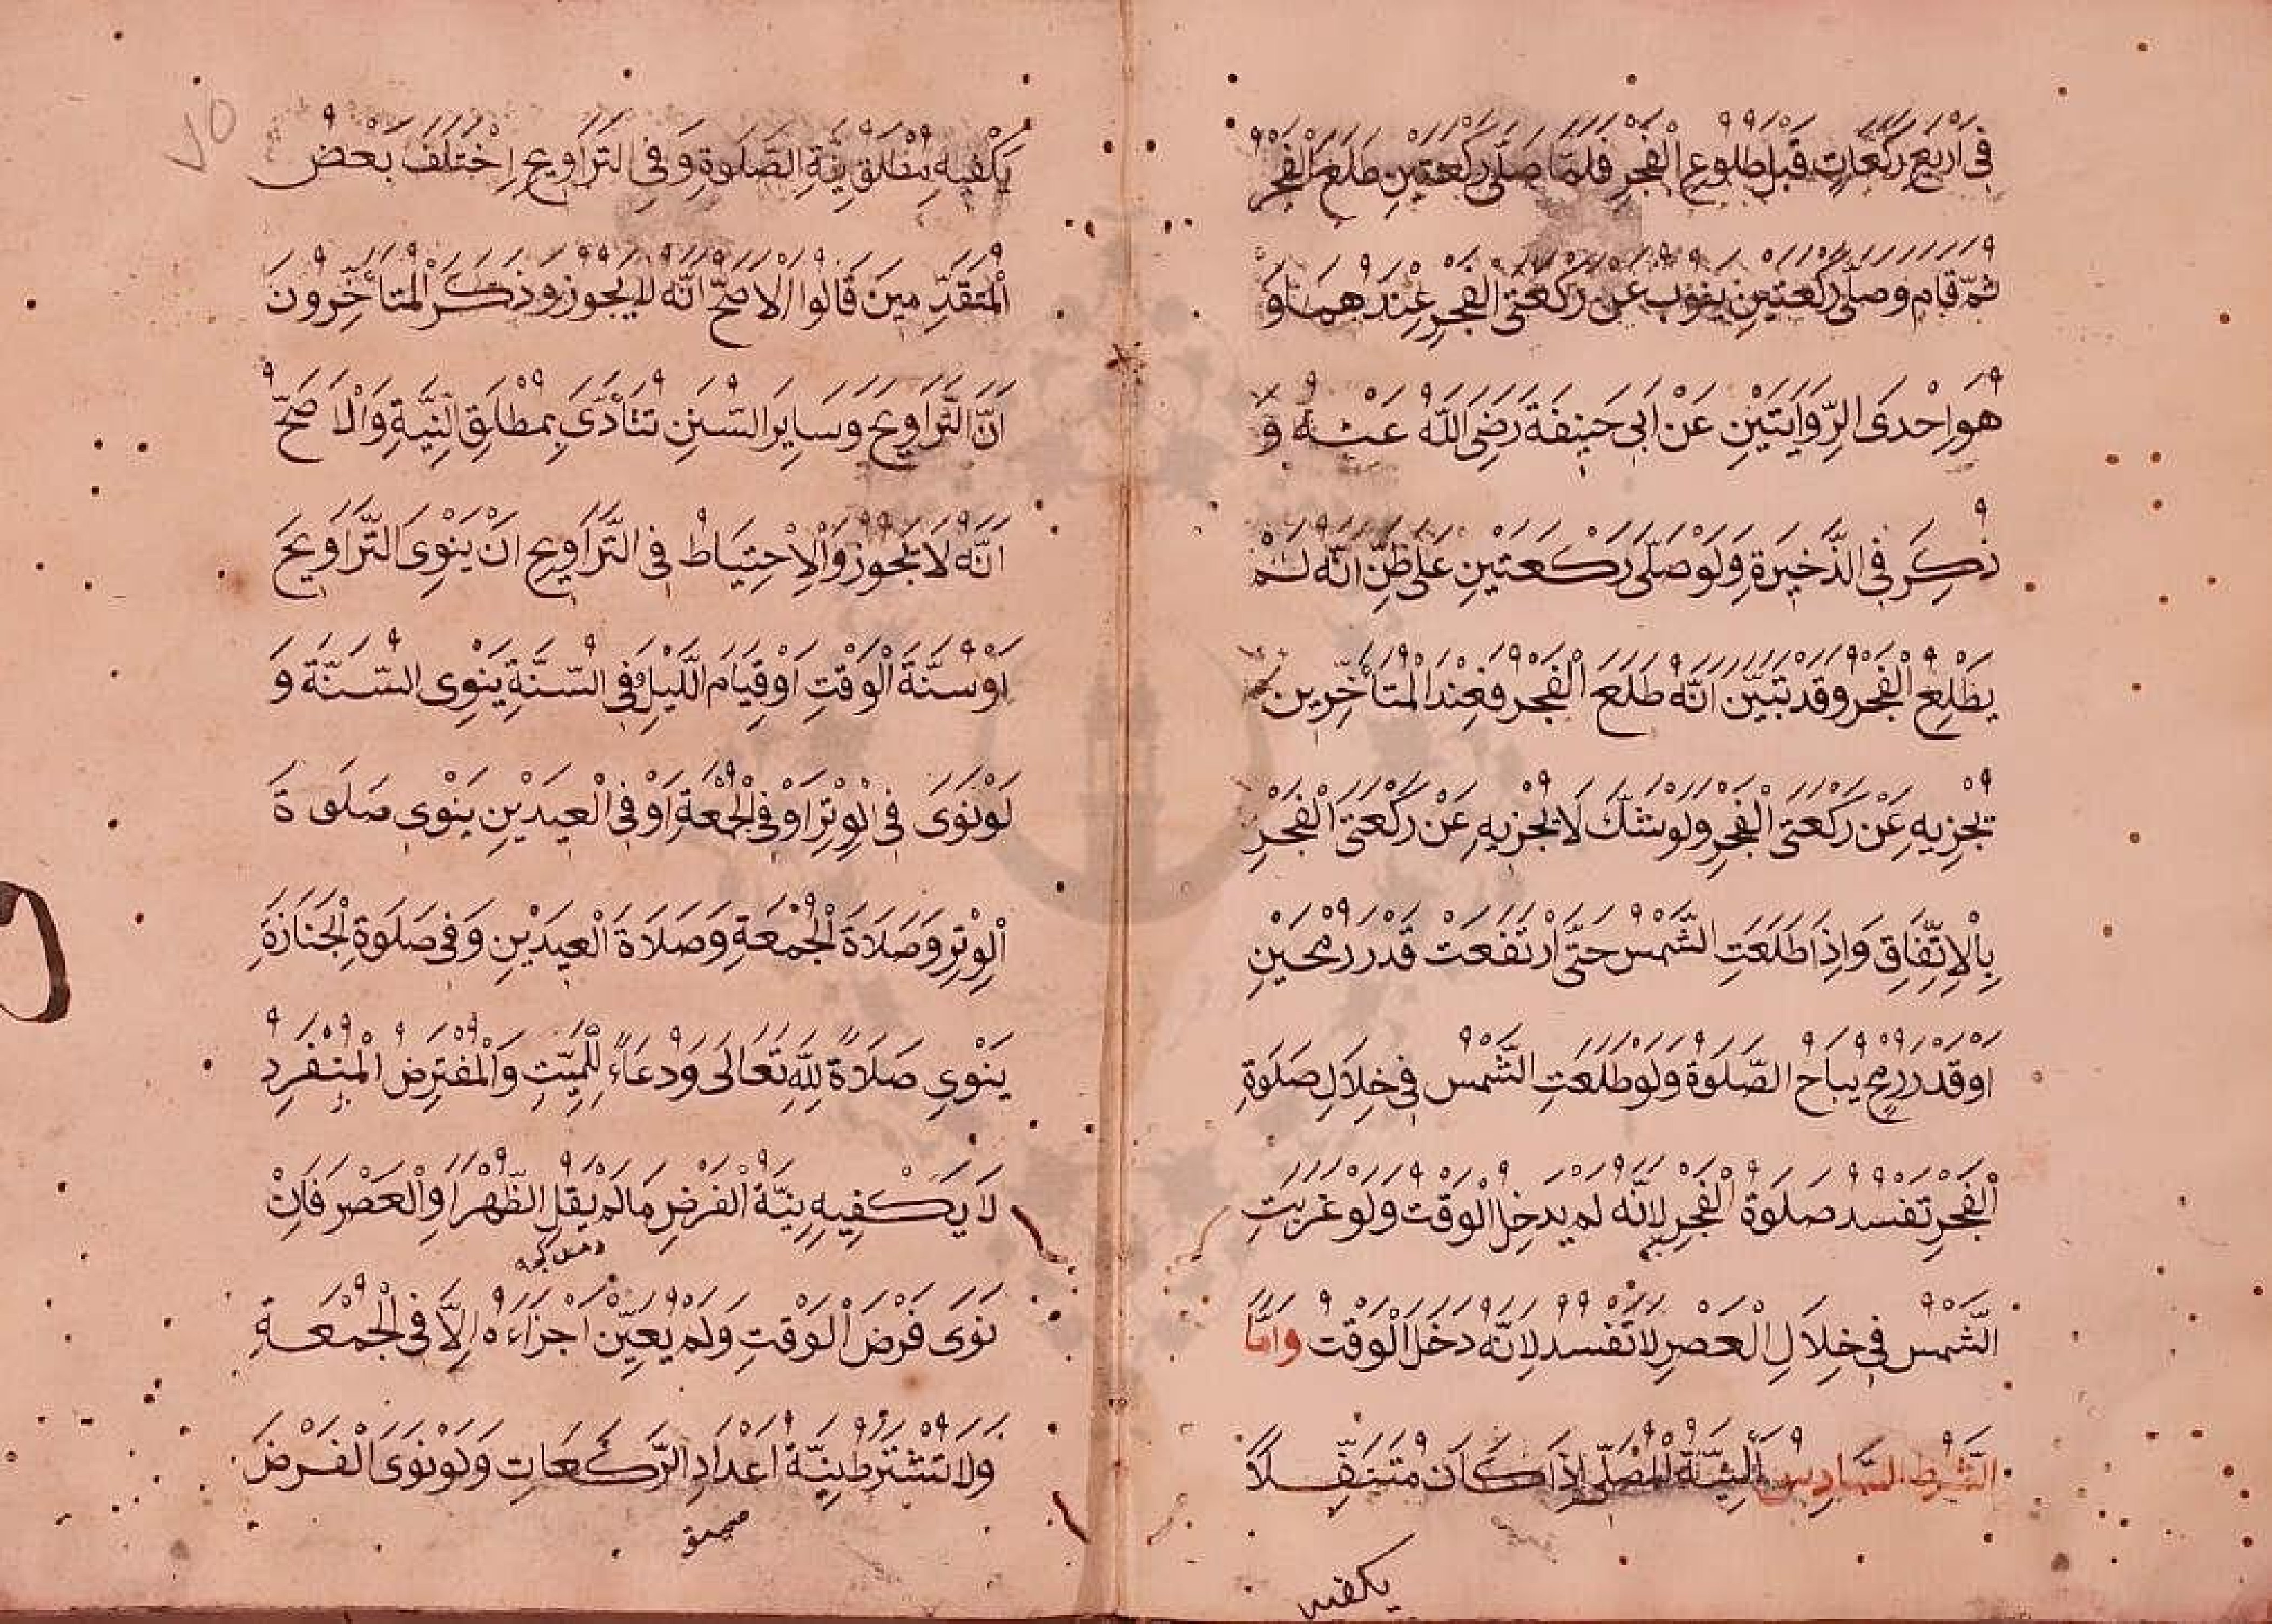 فِى اَرْبَعِ رَكَعَاتٍ قَبْلَ طُلُوعِ الْفَجْرِ فَلَمَّا صَلَّى رَكْعَتَيْنِ طَلَعَ الْفَجْرُ
ثُمَّ قَامَ وَصَلَّى رَكْعَتَيْنِ يَنُوبُ عَنْ رَكْعَتَىِ الْفَجْرِ عِنْدَهُمَا وَ
هُوَ اِحْدَى الرِّوَايَتَيْنِ عَنْ اَبِى حَنِيفَةَ رَضِىَ اللّٰهُ عَنْهُ وَ
ذُكِرَ فِى الذَّخِيرَةِ وَلَوْ صَلَّى رَكْعَتَيْنِ عَلَى ظَنِّ اَنَّهُ لَمْ
يَطْلِعُ الْفَجْرُ وَقَدْ تَبَيَّنَ اَنَّهُ طَلَعَ الْفَجْرُ فَعِنْدَ الْمُتَأَخِّرِينَ
تُجْزِيهِ عَنْ رَكْعَتَىِ الْفَجْرِ وَلَوْ شَكَّ لَا تُجْزِيهِ عَنْ رَكْعَتَىِ الْفَجْرِ
بِالْاِتِّفَاقِ وَاِذَا طَلَعَتِ الشَّمْسُ حَتَّى ارْتَفَعَتْ قَدْرَ رُمْحَيْنِ
اَوْ قَدْرَ رُمْحٍ يُبَاحُ الصَّلَوةُ وَلَوْ طَلَعَتِ الشَّمْسُ فِى خِلَالِ صَلَوةِ
الْفَجْرِ تَفْسُدُ صَلَوةُ الْفَجْرِ لِاَنَّهُ لَمْ يَدْخُلِ الْوَقْتُ وَلَوْ غَرَبَتِ
الشَّمْسُ فِى خِلَالِ الْعَصْرِ لَا تَفْسُدُ لِاَنَّهُ دَخَلَ الْوَقْتُ وَاَمَّا
الشَّرْطُ السَّادِسُ اَلنِّيَّةُ لِلْمُصَلِّى اِذَا كَانَ مُتَنَفِّلًا
يكفيه
يَكْفِيهِ مُطْلَقُ نِيَّةِ الصَّلَوةِ وَفِى التَّرَاوِيحِ اِخْتَلَفَ بَعْضُ
الْمُتَقَدِّمِينَ قَالُوا الْاَصَحُّ اَنَّهُ لَا يَجُوزُ وَذَكَرَ الْمُتَأَخِّرُونَ
اَنَّ التَّرَاوِيحَ وَسَايِرَ السُّنَنِ تَتَأَدَّى بِمُطْلَقِ النِّيَّةِ وَالْاَصَحُّ
اَنَّهُ لَا يَجُوزُ وَالْاِحْتِيَاطُ فِى التَّرَاوِيحِ اَنْ يَنْوِىَ التَّرَاوِيحَ
اَوْ سُنَّةَ الْوَقْتِ اَوْ قِيَامَ اللَّيْلِ وَفِى السُّنَّةِ يَنْوِى السُّنَّةَ وَ
لَوْ نَوَى فِى الْوِتْرِ اَوْ فِى الْجُمْعَةِ اَوْ فِى الْعِيدَيْنِ يَنْوِى صَلَوةَ
الْوِتْرِ وَصَلَاةَ الْجُمْعَةِ وَصَلَاةَ الْعِيدَيْنِ وَفِى صَلَوةِ الْجَنَازَةِ
يَنْوِى صَلَاةً لِلّٰهِ تَعَالَى وَدُعَاءً لِلْمَيِّتِ وَالْمُفْتَرِضُ الْمُنْفَرِدُ
لَا يَكْفِيهِ نِيَّةُ الْفَرْضِ مَا لَمْ يَقُلِ الظُّهْرَ اَوِ الْعَصْرَ فَاِنْ
نَوَى فَرْضَ الْوَقْتِ وَلَمْ يُعَيِّنْ اَجْزَاءَهُ اِلَّا فِى الْجُمْعَةِ
وَلَا تُشْتَرَطُ نِيَّةُ اَعْدَادِ الرَّكَعَاتِ وَلَوْ نَوَى الْفَرْضَ